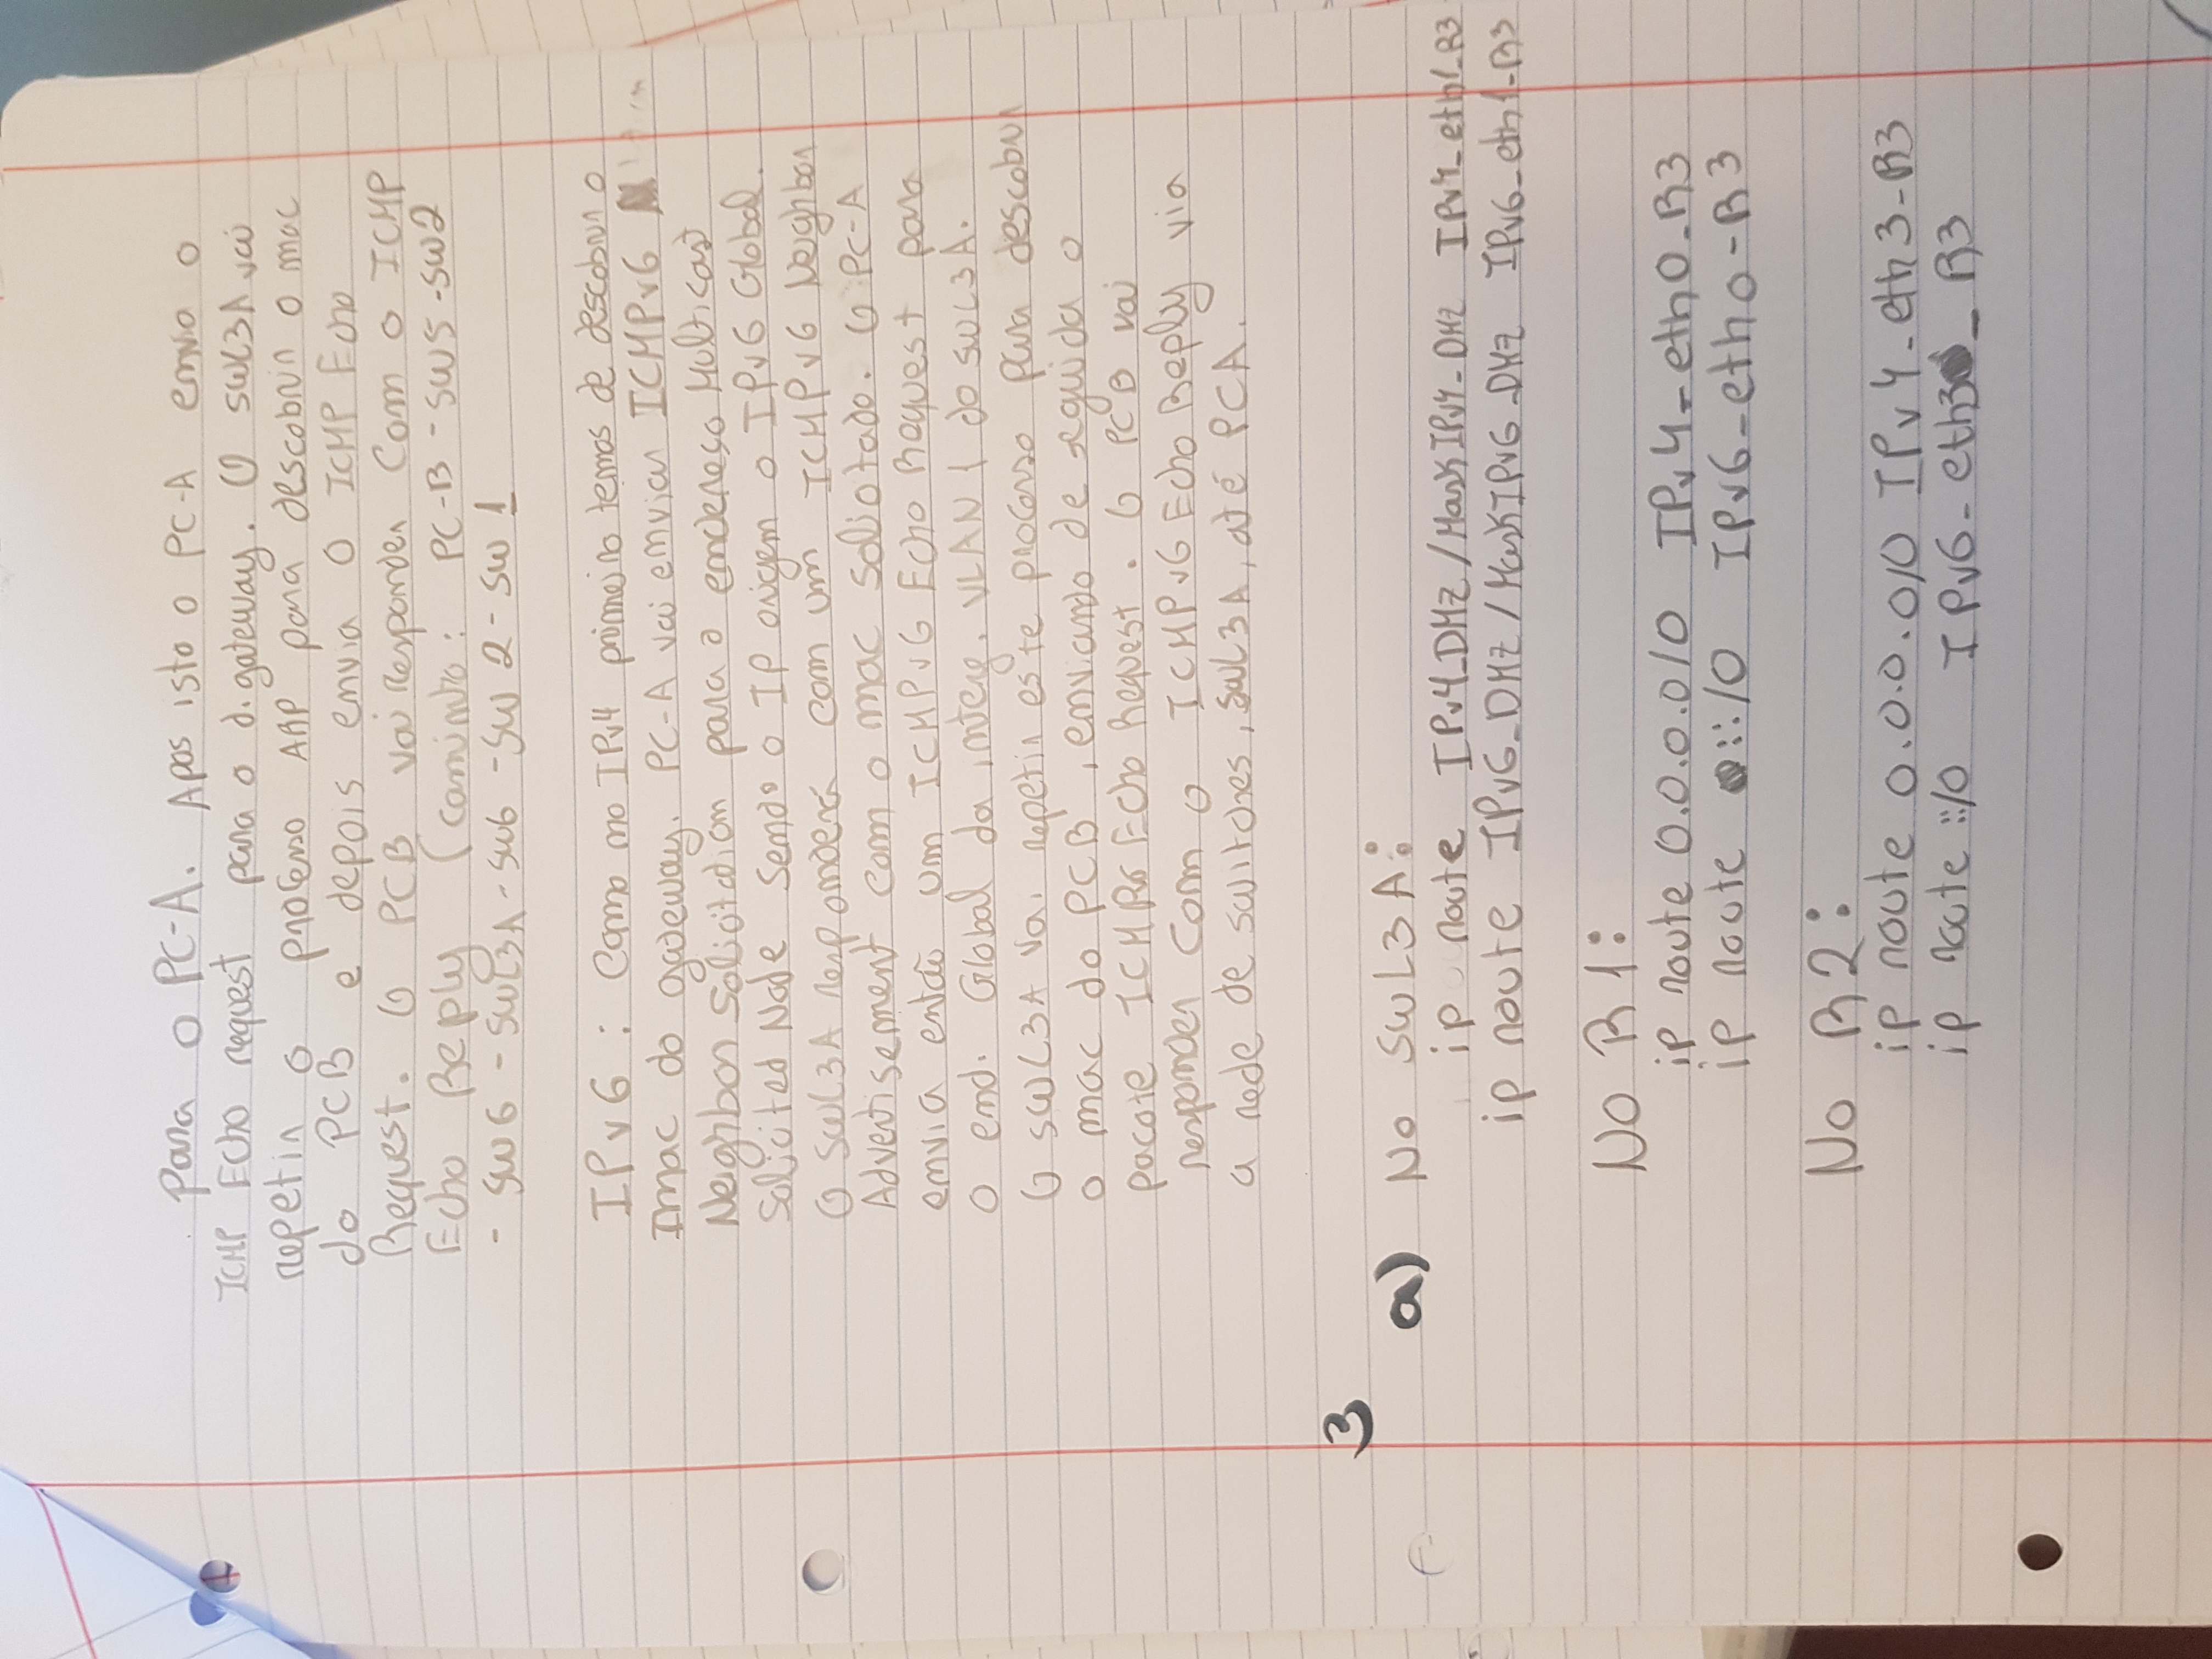 para o PC-A. Apos isto o PC-A envia o
ICMP Echo request para o d.gateway. O SWL3A vai
repetir o processo ARP para descobrir o mac
do PCB e depois envia O ICMP Echo
Request. O PCB vai responder Com o ICMP
Echo Reply (caminho: PC-B - SW5 - SW2
- SW6 - SWL3A - SW6 - SW 2 - SW 1
IPv6 : Como no IPv4 primeiro temos de descobrir o
mac do gateway. PC-A vai enviar ICMPv6
Neighbor Solicitation para o endereço Multicast
Solicited Node Sendo o IP origem o IPv6 Global.
O SWL3A responderá com um ICMPv6 Neighbor
Advertisement com o mac solicitado. O PC-A
envia então um ICMPv6 Echo Request para
O end. Global da interg. VLAN 1 do SWL3A.
O SWL3A vai repetir este processo para descobrir
o mac do PCB, enviando de seguida o
pacote ICMPv6 Echo Request. O PCB vai
responder Com o ICMPv6 Echo Reply via
a rede de switches, SWL3A, até PCA.
3
a) No SWL3A:
ip route IPv4_DMZ/MaskIPv4_DMZ IPv4_eth1_R3
ip route IPv6_DMZ/MaskIPv6_DMZ IPv6_eth1_R3
No R1:
ip route 0.0.0.0/0 IPv4_eth0_R3
ip route ::/0 IPv6_eth0_R3
No R2:
ip route 0.0.0.0/0 IPv4_eth3_R3
ip route ::/0 IPv6_eth3_R3